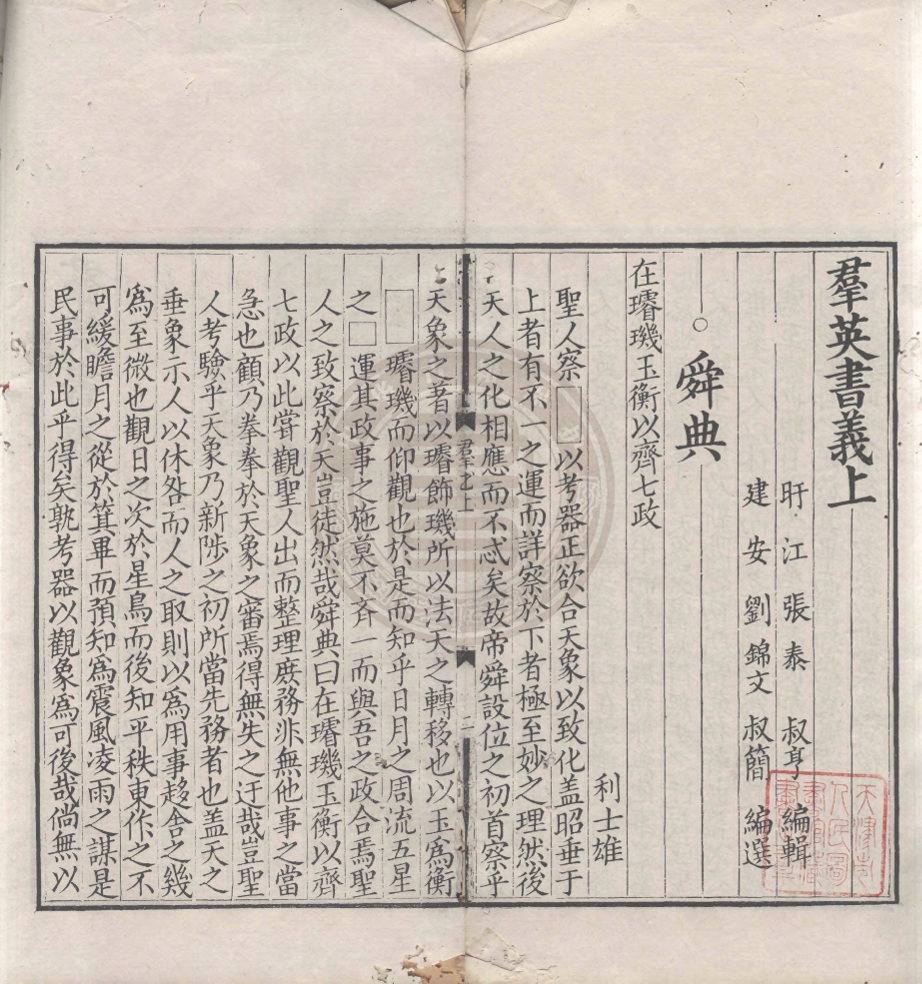 羣英書義上
盱江張泰叔亨編輯
建安劉錦文叔簡編選
○舜典
在璿璣玉衡以齊七政
利士雄
聖人察□以考器正欲合天象以致化盖昭垂于
上者有不一之運而詳察於下者極至妙之理然後
天人之化相應而不忒矣故帝舜設位之初首察乎
羣書上
二
天象之著以璿飾璣所以法天之轉移也以玉爲衡
□璿璣而仰觀也於是而知乎日月之周流五星
之□運其政事之施莫不斉一而與吾之政合焉聖
人之致察於天豈徒然哉舜典曰在璿璣玉衡以齊
七政以此甞觀聖人出而整理庶務非無他事之當
急也顧乃拳拳於天象之審焉得無失之迂哉豈聖
人考驗乎天象乃新陟之初所當先務者也盖天之
垂象示人以休咎而人之取則以爲用事趍舍之幾
爲至微也觀日之次於星鳥而後知平秩東作之不
可緩瞻月之從於箕畢而預知爲震風凌雨之謀是
民事於此乎得矣孰考器以觀象爲可後哉倘無以